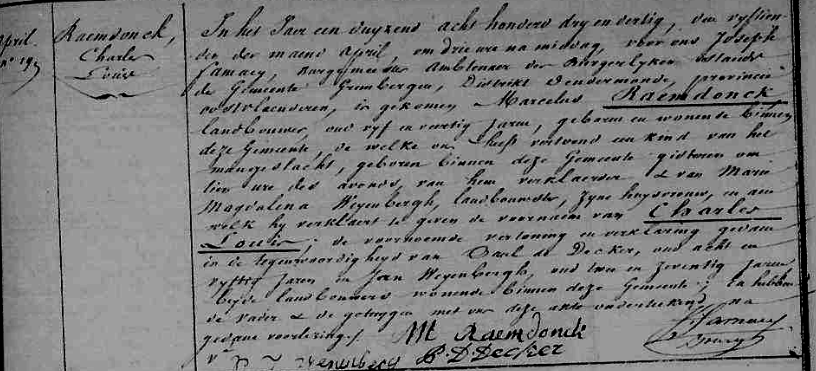 April.
n° 19,
Raemdonck,
Charles
Louis
In het Jaer een duyzend acht honderd dry en dertig, den vyftien-
den der maend April, om drie ure na middag, voor ons Joseph
Lamaey, Burgemeester Ambtenaer der Burgerlyken stand
de Gemeente Grembergen, Distrikt Dendermonde, provincie
oostvlaenderen, is gekomen Marcelus Raemdonck
landbouwer, oud vyf en veertig Jaren, geboren en wonende binnen
deze Gemeente, de welke ons heeft vertoond een kind van het
mangeslacht, geboren binnen deze Gemeente gisteren om
tien ure des avonds, van hem verklaerder & van Maria
Magdalena Weyenbergh, landbouwster, zyne huysvrouw, en aen
welk hy verklaert te geven de voornaem van Charles
Louis; de voornoemde vertoning en verklaring gedaen
in de tegenwoordigheyd van Paul de Decker, oud acht en
vyftig Jaren en Jan Weyenbergh, oud twee en zeventig Jaren
beyde landbouwers wonende binnen deze Gemeente; En hebben
de vader & de getuygen met ons deze akte onderteekend na
gedane voorlezing./.
M Raemdonck
P. D. Decker